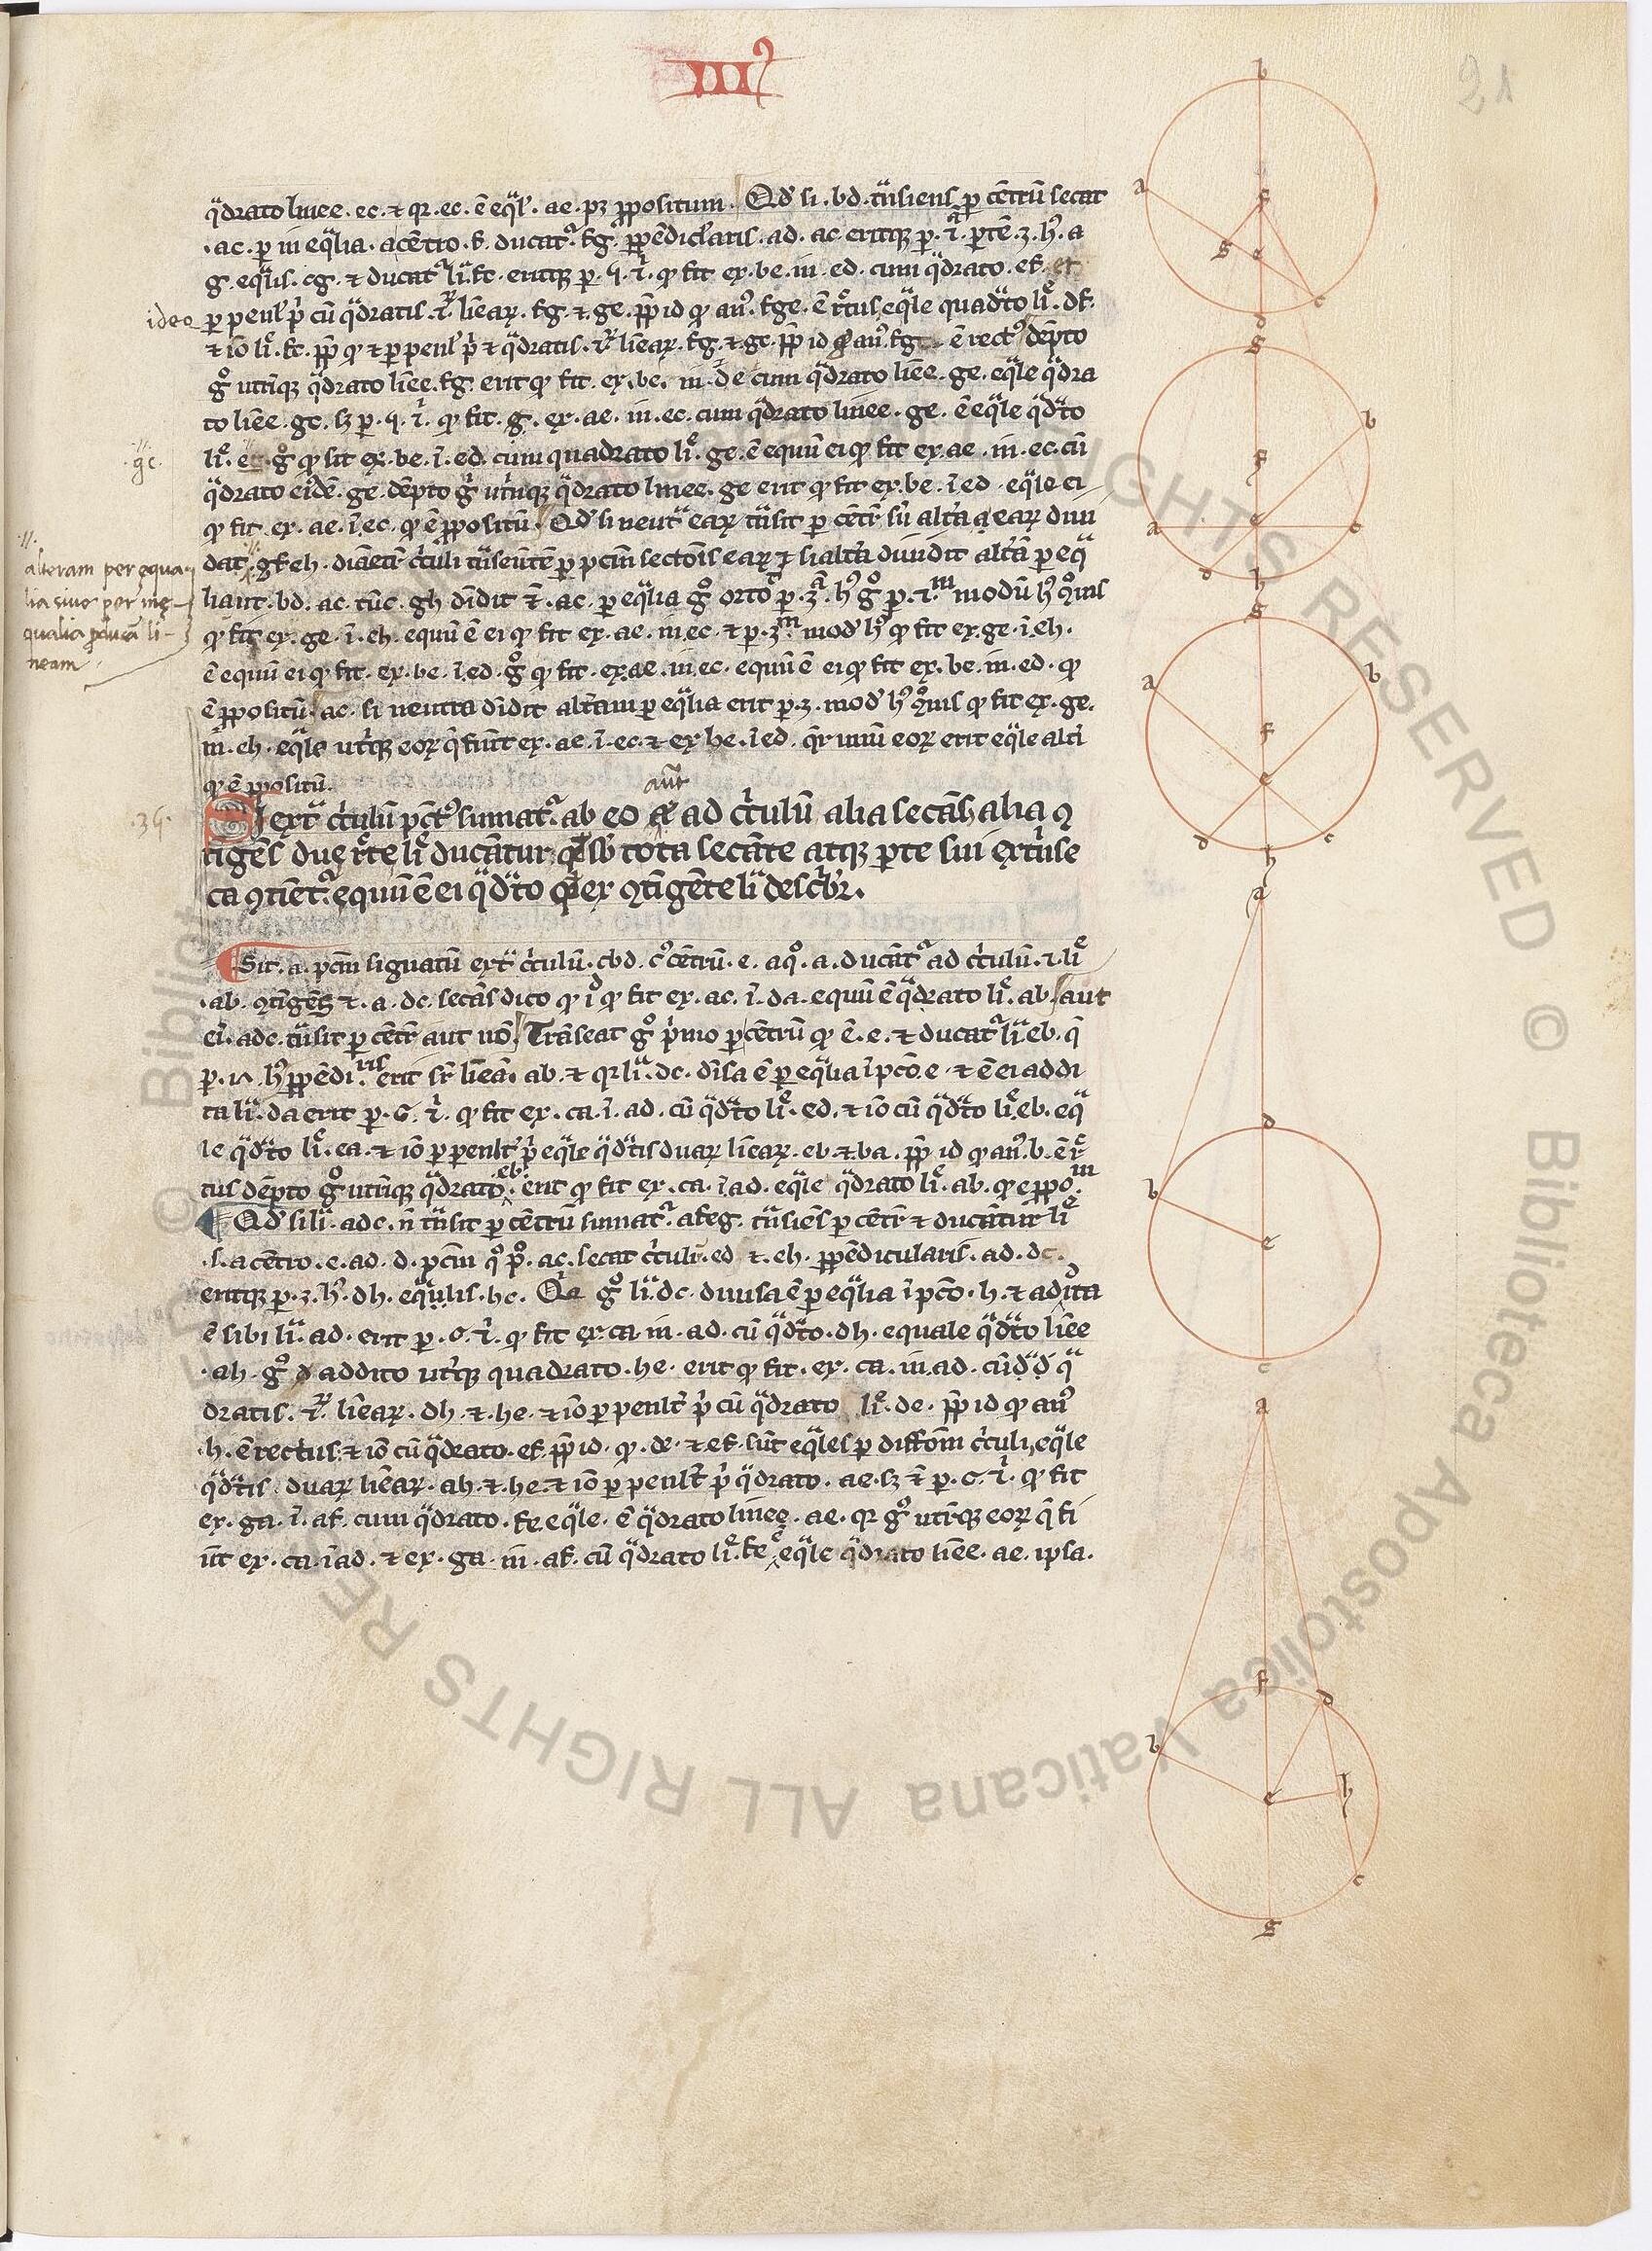 III
21
q̈drato linee .ec. ⁊ qr .ec. ē eq̈l' .ae. pꝫ ꝓpositum. Qd' si .bd. tᵃnsiens ꝑ cētrū secat
.ac. ꝑ in eq̈lia. a cētro .f. ducatᷣ .fg. ꝑpēdicl'aris. ad .ac. eritqꝫ ꝑ .1ᵃ. ꝑtē .3. hꝰ .a
g. eq̈lis .cg. ⁊ ducatᷣ liᵃ .fc. eritqꝫ ꝑ .5. 2ⁱ. qđ fit ex .be. in .ed. cum q̈drato .ef. et
ꝑ penl' pⁱ cū q̈dratis .2ᵃꝝ. lineaꝝ .fg. ⁊ .ge. ꝓp id qđ an᷒ .fge. ē rc̄tus eq̈le quadᵃto liᵉ .df.
⁊ iō liᵉ .fc. ꝓp qđ ⁊ ꝑ penl' pⁱ ⁊ q̈dratis .2ᵃꝝ lineaꝝ .fg. ⁊ .gc. ꝓp id qđ an᷒ .fgc. ē rect᷒ dēpto
gͦ utriqꝫ q̈drato linee .fg. erit qđ fit .ex .be. in .de cum q̈drato linee .ge. eq̈le q̈dra
to linee .gc. sꝫ ꝑ .5. 2ⁱ. qđ fit .g. ex .ae. in .ec. cum q̈drato linee .ge. ē eq̈le q̈dᵃto
liᵉ .ec. gͦ qđ fit ex .be. ī .ed. cum quadrato liᵉ .ge. ē equū ei qđ fit ex .ae. in .ec. cū
q̈drato eidē .ge. dēpto gͦ utriqꝫ q̈drato linee .ge erit qđ fit ex .be. ī ed. eq̈le ei
qđ fit .ex .ae. ī ec. qđ ē ꝓpositū. Qd' si neutᵃ eaꝝ tᵃnsit ꝑ cētꝝ sⁿ altᵃ eaꝝ diui
dat .gfeh. diametꝝ cⁱculi tᵃnseuntē ꝑ pcm sectiōis eaꝝ ⁊ si altᵃ diuidit altᵃ ꝑ eq̈
lia ut .bd. ac. tūc .gh diuidit ⁊ .ac. ꝑ eq̈lia gͦ orto ꝑ .3ᵃ. hꝰ gͦ ꝑ .2ᵐ modū hꝰ ꝯnis
qđ fit ex .ge. ī .eh. equū ē ei qđ fit ex .ae. in ec. ⁊ ꝑ .3ᵐ. mod' hꝰ qđ fit ex .ge. ī .eh.
ē equū ei qđ fit. ex .be. ī .ed. gͦ qđ fit .ex .ae. in .ec. equū ē ei qđ fit ex .be. in .ed. qđ
ē ꝓpositū. ac. si neutra diuidit altᵃm ꝑ eq̈lia erit ꝑ .3. mod' hꝰ ꝯnis qđ fit ex .ge.
in .eh. eq̈le utriqꝫ eoꝝ q̄ fiūt ex .ae. ī .ec. ⁊ ex be. ī ed. q̄r unū eoꝝ erit eq̈le altⁱ
qđ ē ꝓpositū.
aut̄
Si extᵃ cⁱculū pct᷒ sumatᷣ. ab eo ad cⁱculū alia secās alia ꝯ
tīgēs due rc̄te liᵉ ducātur qđ sb tota secāte atqꝫ ꝑte sui extⁱnse
ca ꝯtinetᷣ equū ē ei q̈dᵃto qđ ex ꝯtīgēte liᵃ descⁱbiᷣ.
Sit .a. pcm signatū extᵃ cⁱculū .cbd. c᷒ cētrū .e. a qͦ .a. ducātᷣ ad cⁱculū .2. liᵉ
.ab. ꝯtīgēs ⁊ .a. dc. secās dico qđ id qđ fit ex .ac. ī .da. equū ē q̈drato liᵉ .ab. aut
eī .adc. tᵃnsit ꝑ cētꝝ aut nō. Trāseat gͦ pⁱmo ꝑ cētrū qđ ē .e. ⁊ ducatᷣ liᵃ eb. q̄
ꝑ .17. hꝰ ꝑpēdi.ris erit sᷣ lineā .ab. ⁊ qr liᵃ .dc. diuisa ē ꝑ eq̈lia ī pcō .e. ⁊ ē ei addi
ta liᵃ .da erit ꝑ .6. 2ⁱ. qđ fit ex .ca. ī .ad. cū q̈dᵃto liᵉ .ed. ⁊ iō cū q̈dᵃto liᵉ .eb. eq̈
le q̈dᵃto liᵉ .ea. ⁊ iō ꝑ penlt' pⁱ eq̈le q̈dᵃtis duaꝝ lineaꝝ .eb. ⁊ .ba. ꝓp id qđ an᷒ .b. ē rᵉ
ctus dēpto gͦ utriqꝫ q̈drato .eb. erit qđ fit ex .ca. ī .ad. eq̈le q̈drato liᵉ .ab. qđ ē ꝓpoᵐ
Qd' si liᵃ .adc. nͦ tᵃnsit ꝑ cētrū sumatᷣ .afeg. tᵃnsiēs ꝑ cētꝝ ⁊ ducātur liᵉ
.s. a cētro .e. ad .d. pcm qͦ pͦ .ac. secat cⁱculū .ed ⁊ .eh. ꝑpēdicularis. ad .dc.
eritqꝫ ꝑ .3. hꝰ .dh. equalis .hc. Qr gͦ liᵃ .dc. diuisa ē ꝑ eq̈lia ī pcō .h. ⁊ addita
ē sibi liᵃ .ad. erit ꝑ .6. 2ⁱ. qđ fit ex .ca in .ad. cū q̈dᵃto .dh. equale q̈dᵃto linee
.ah. gͦ addito utriqꝫ quadrato .he. erit qđ fit. ex .ca. in .ad. cū q̈
dratis .2ᵃꝝ. lineaꝝ .dh. ⁊ .he. ⁊ iō ꝑ penlt' pⁱ cū q̈drato liᵉ .de. ꝓp id qđ an᷒
.h. ē rectus ⁊ iō cū q̈drato .ef. ꝓp id .qđ .de. ⁊ .ef. sūt eq̈les ꝑ diffōm cⁱculi, eq̈le
q̈dᵃtis duaꝝ lineaꝝ .ah. ⁊ .he. ⁊ iō ꝑ penlt' pⁱ q̈drato .ae. sꝫ ⁊ ꝑ .6. 2ⁱ. qđ fit
ex .ga. ī .af. cum q̈drato .fe. eq̈le ē q̈drato linee .ae. qr gͦ utrūqꝫ eoꝝ q̄ fi
ūt ex .ca. ī ad. ⁊ ex .ga. in .af. cū q̈drato liᵉ .fe ē eq̈le q̈drato linee .ae. ipsa.
ideo
.gc.
alteram per equa
lia siue per ine
qualia ꝓducā li
neam
.35.
b
a
f
g
e
c
d
g
b
f
a
e
c
d
h
g
a
b
f
e
d
c
h
a
d
b
e
c
a
f
d
b
e
h
c
g
© Biblioteca Apostolica Vaticana ALL RIGHTS RESERVED